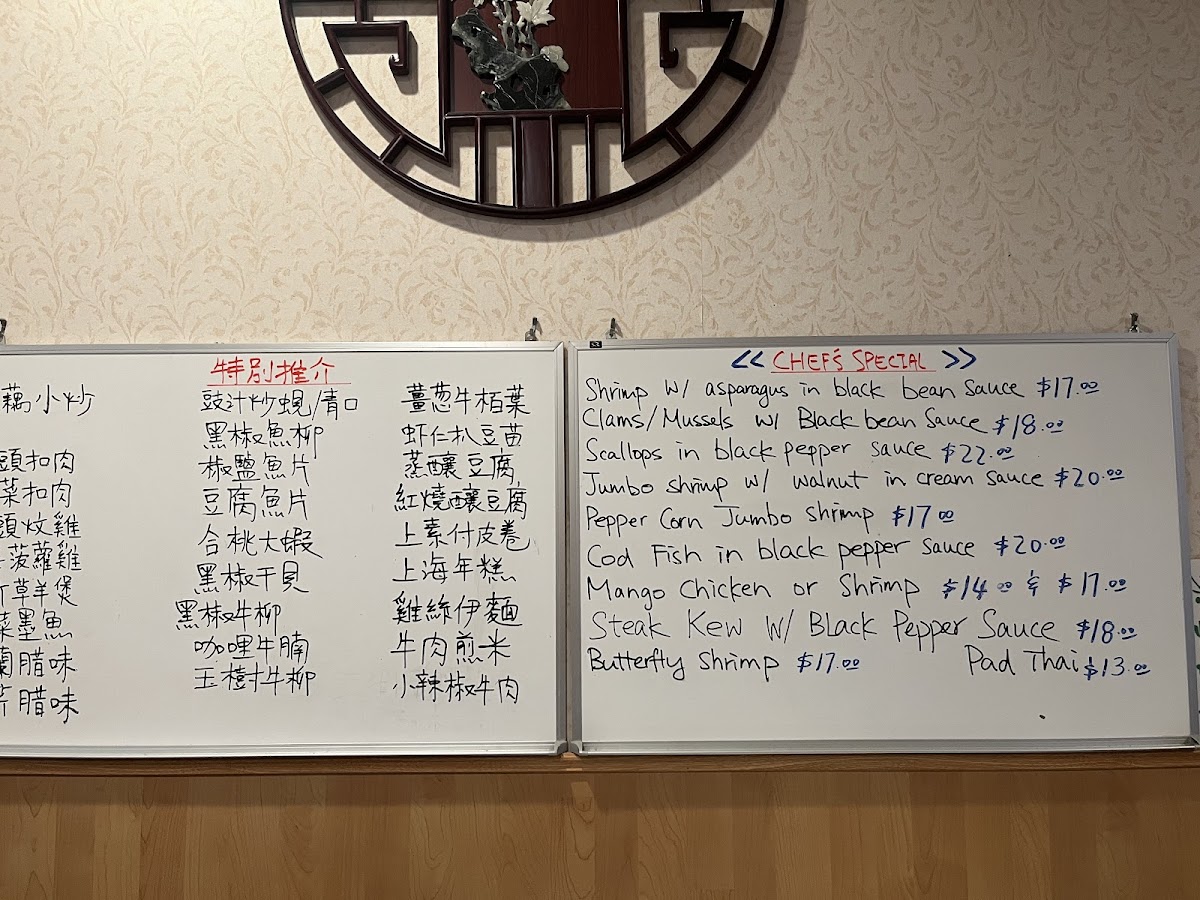 特別推介
藕小炒
頭扣肉
菜扣肉
頭炆雞
菠蘿雞
草羊煲
菜墨魚
蘭腊味
芹腊味
豉汁炒蜆/青口
黑椒魚柳
椒盬魚片
豆腐魚片
合桃大蝦
黑椒干貝
黑椒牛柳
咖哩牛腩
玉樹牛柳
薑葱牛栢葉
虾仁扒豆苗
蒸釀豆腐
紅燒釀豆腐
上素付皮卷
上海年糕
雞絲伊麵
牛肉煎米
小辣椒牛肉
<< CHEF'S SPECIAL >>
Shrimp W/ asparagus in black bean sauce $17.00
Clams/Mussels w/ Black bean Sauce $18.00
Scallops in black pepper sauce $22.00
Jumbo shrimp w/ walnut in cream sauce $20.00
Pepper Corn Jumbo Shrimp $17.00
Cod Fish in black pepper sauce $20.00
Mango Chicken or Shrimp $14.00 & $17.00
Steak Kew W/ Black Pepper Sauce $18.00
Butterfly Shrimp $17.00 Pad Thai $13.00